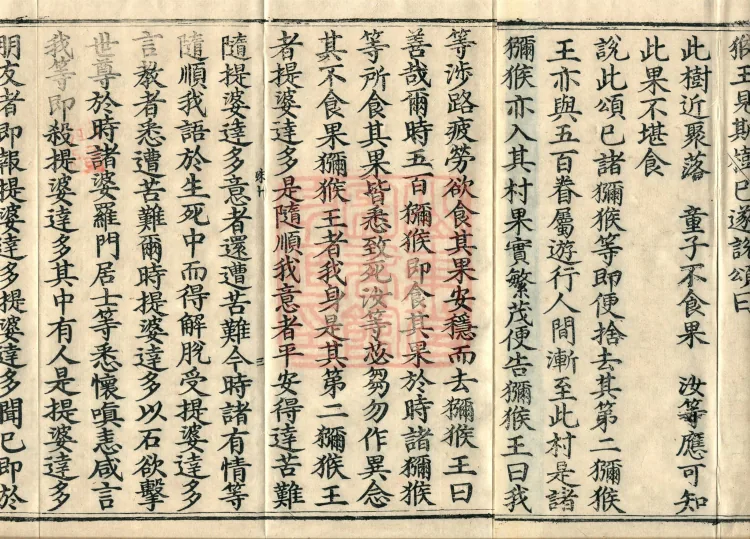 猴王見斯樹已遂說頌曰
此樹近聚落　童子不食果　汝等應可知
此果不堪食
說此頌已諸獼猴等即便捨去其第二獼猴
王亦與五百眷屬遊行人間漸至此村是諸
獼猴亦入其村果實繁茂便告獼猴王曰我
等涉路疲勞欲食其果安穩而去獼猴王曰
善哉爾時五百獼猴即食其果於時諸獼猴
等所食其果皆悉致死汝等苾芻勿作異念
其不食果獼猴王者我身是其第二獼猴王
者提婆達多是隨順我意者平安得達苦難
三
隨提婆達多意者還遭苦難今時諸有情等
隨順我語於生死中而得解脫受提婆達多
言教者悉遭苦難爾時提婆達多以石欲擊
世尊於時諸婆羅門居士等悉懷嗔恚咸言
我等即殺提婆達多其中有人是提婆達多
朋友者即報提婆達多提婆達多聞已即於